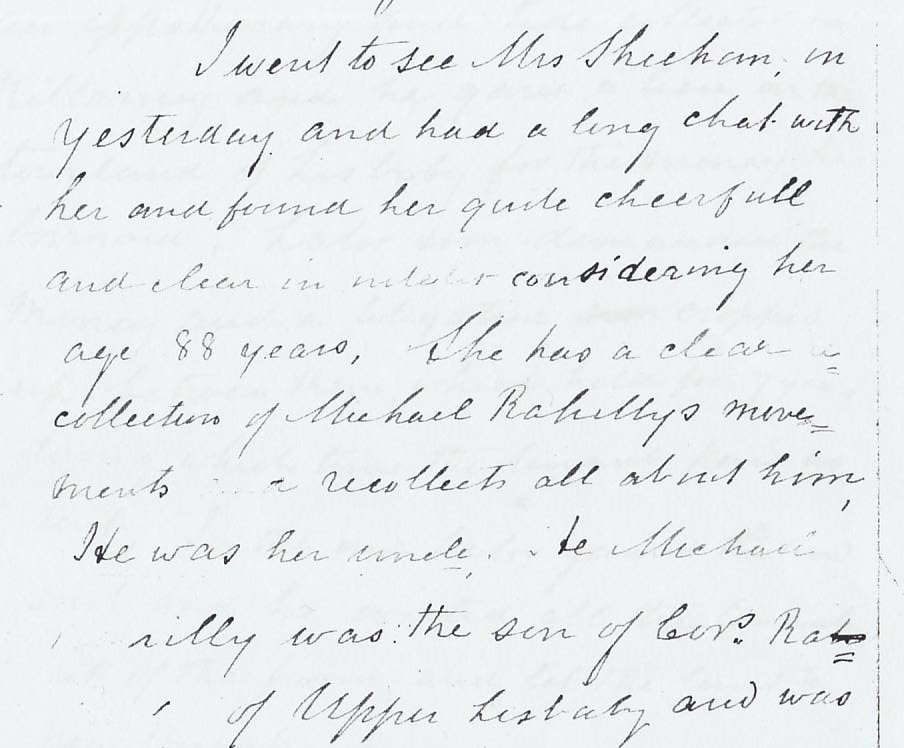 I went to see Mrs Sheehan, on
yesterday and had a long chat with
her and found her quite cheerfull
and clear in considering her
age 88 years, She has a clear re=
collection of Michael Rahillys move=
ments recollects all about him,
He was her uncle. He Michael
was the son of Cors. Rah=
of Upper Lisbaby and was